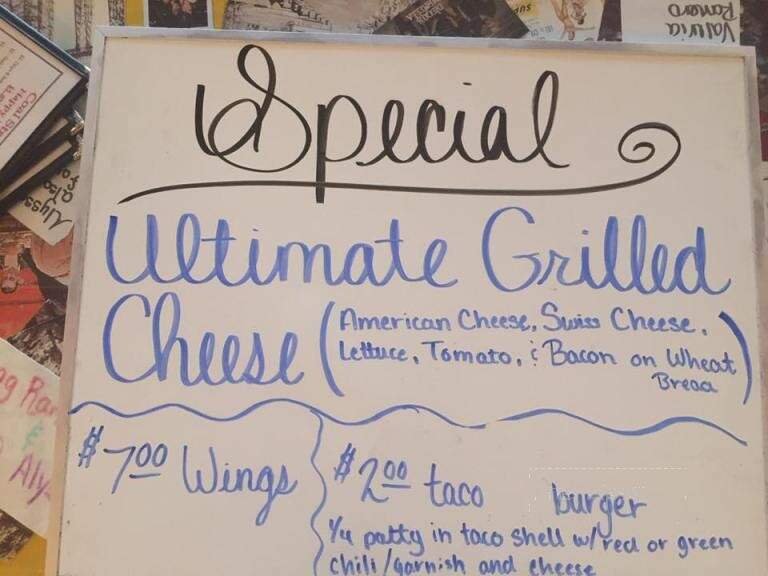 Special
Ultimate Grilled
Cheese (American Cheese, Swiss Cheese,
Lettuce, Tomato, & Bacon on Wheat
Bread)
$7.00 Wings
$2.00 taco burger
1/4 patty in taco shell w/red or green
chili/garnish and cheese
Valeria
Romero
Coal
Happy
Alyssa
Aly